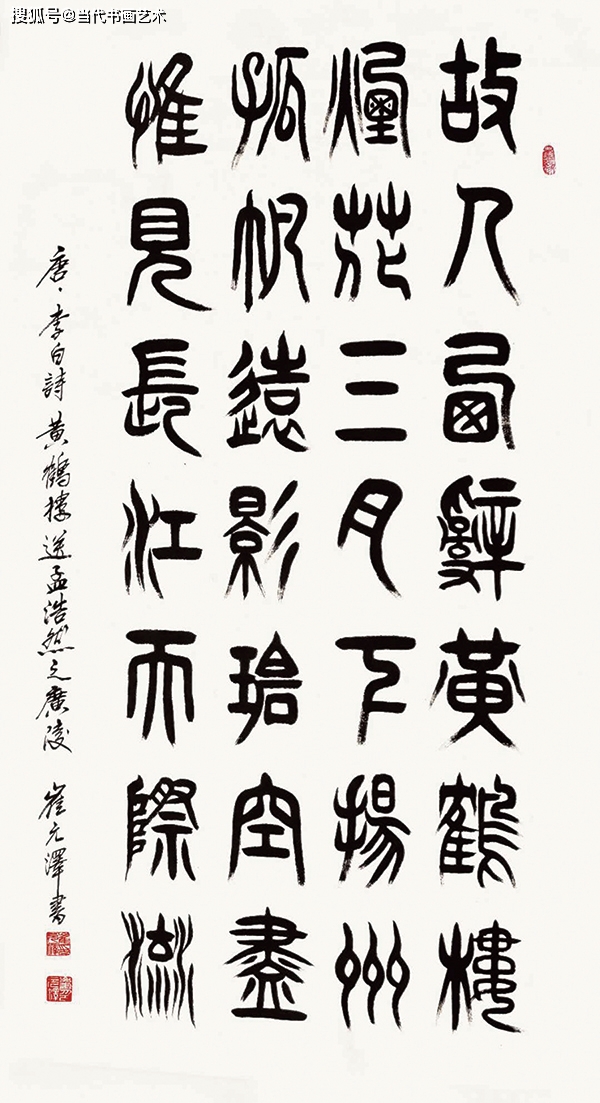 搜狐号@当代书画艺术
故人西辭黃鶴樓
煙花三月下揚州
孤帆遠影碧空盡
惟見長江天際流
唐·李白詩 黃鶴樓送孟浩然之廣陵 崔元澤書